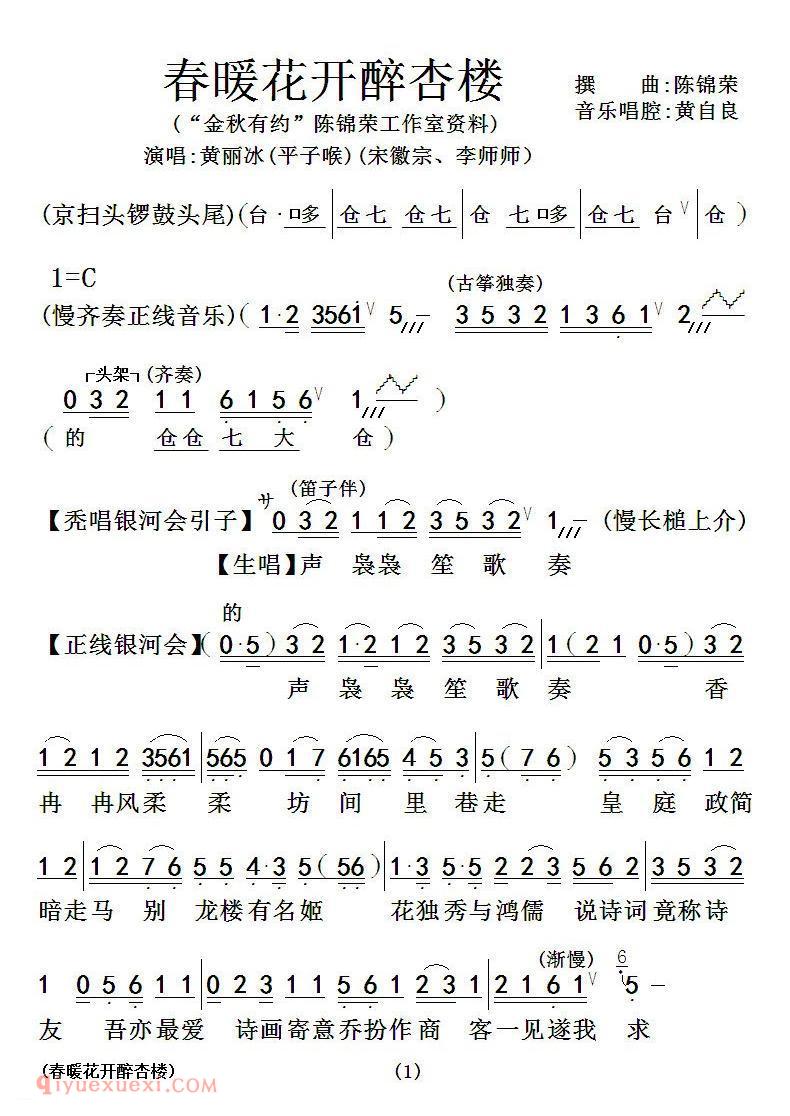 春暖花开醉杏楼
撰 曲:陈锦荣
(“金秋有约”陈锦荣工作室资料)
音乐唱腔:黄自良
演唱:黄丽冰(平子喉)(宋徽宗、李师师)
(京扫头锣鼓头尾)(台·哆|仓七 仓七|仓 七哆|仓七 台∨|仓)
1=C
(古筝独奏)
(慢齐奏正线音乐)(1·2 3561∨ 5 – 3532 1361∨ 2
┌头架┐(齐奏)
032 11 6156∨ 1 )
(的 仓仓七大 仓)
サ (笛子伴)
【秃唱银河会引子】032 112 3532∨ 1 – (慢长槌上介)
【生唱】声 袅袅 笙 歌 奏
的
【正线银河会】(0·5)32 1·212 3532|1(21 0·5)32
声 袅 袅 笙 歌 奏 香
1212 3561|565 017 6165 453|5(76) 5356 12
冉 冉风柔 柔 坊 间 里 巷走 皇 庭 政简
12|1276 55 4·3 5(56)|1·3 5·5 223 562|3532
暗走马 别 龙楼有名姬 花独秀与鸿儒 说诗词竟称诗
(渐慢) 6
1 056 11|023 11 561 231|2161∨ 5 –
友 吾亦最爱 诗画寄意乔扮作商 客一见遂我 求
(春暖花开醉杏楼)
(1)
qiyuexuexi.com